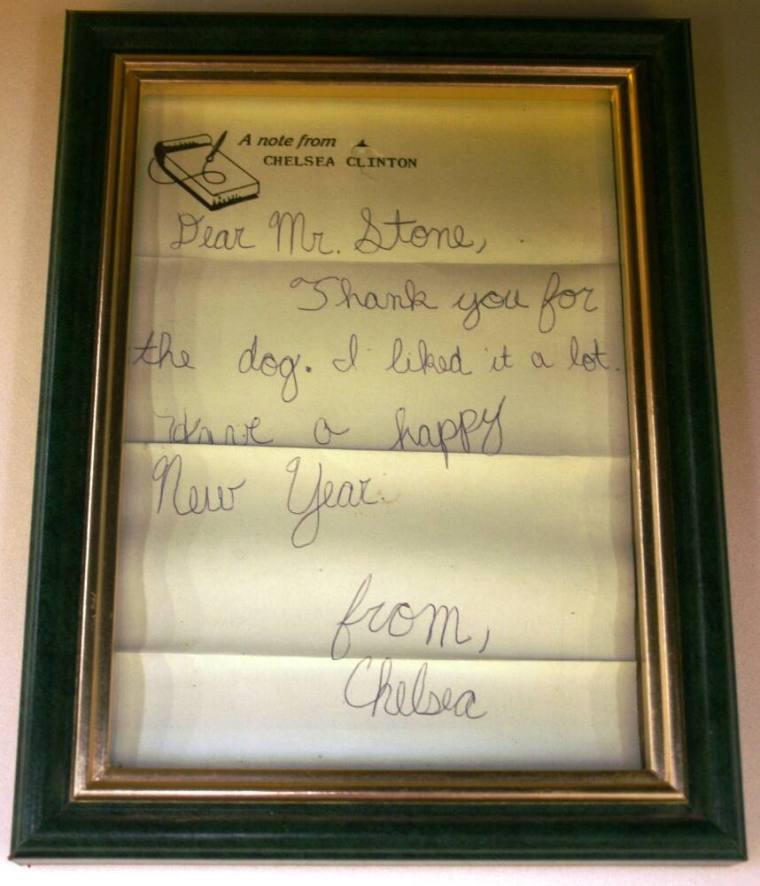 A note from
CHELSEA CLINTON
Dear Mr. Stone,
Thank you for
the dog. I liked it a lot.
Have a happy
New Year.
from,
Chelsea